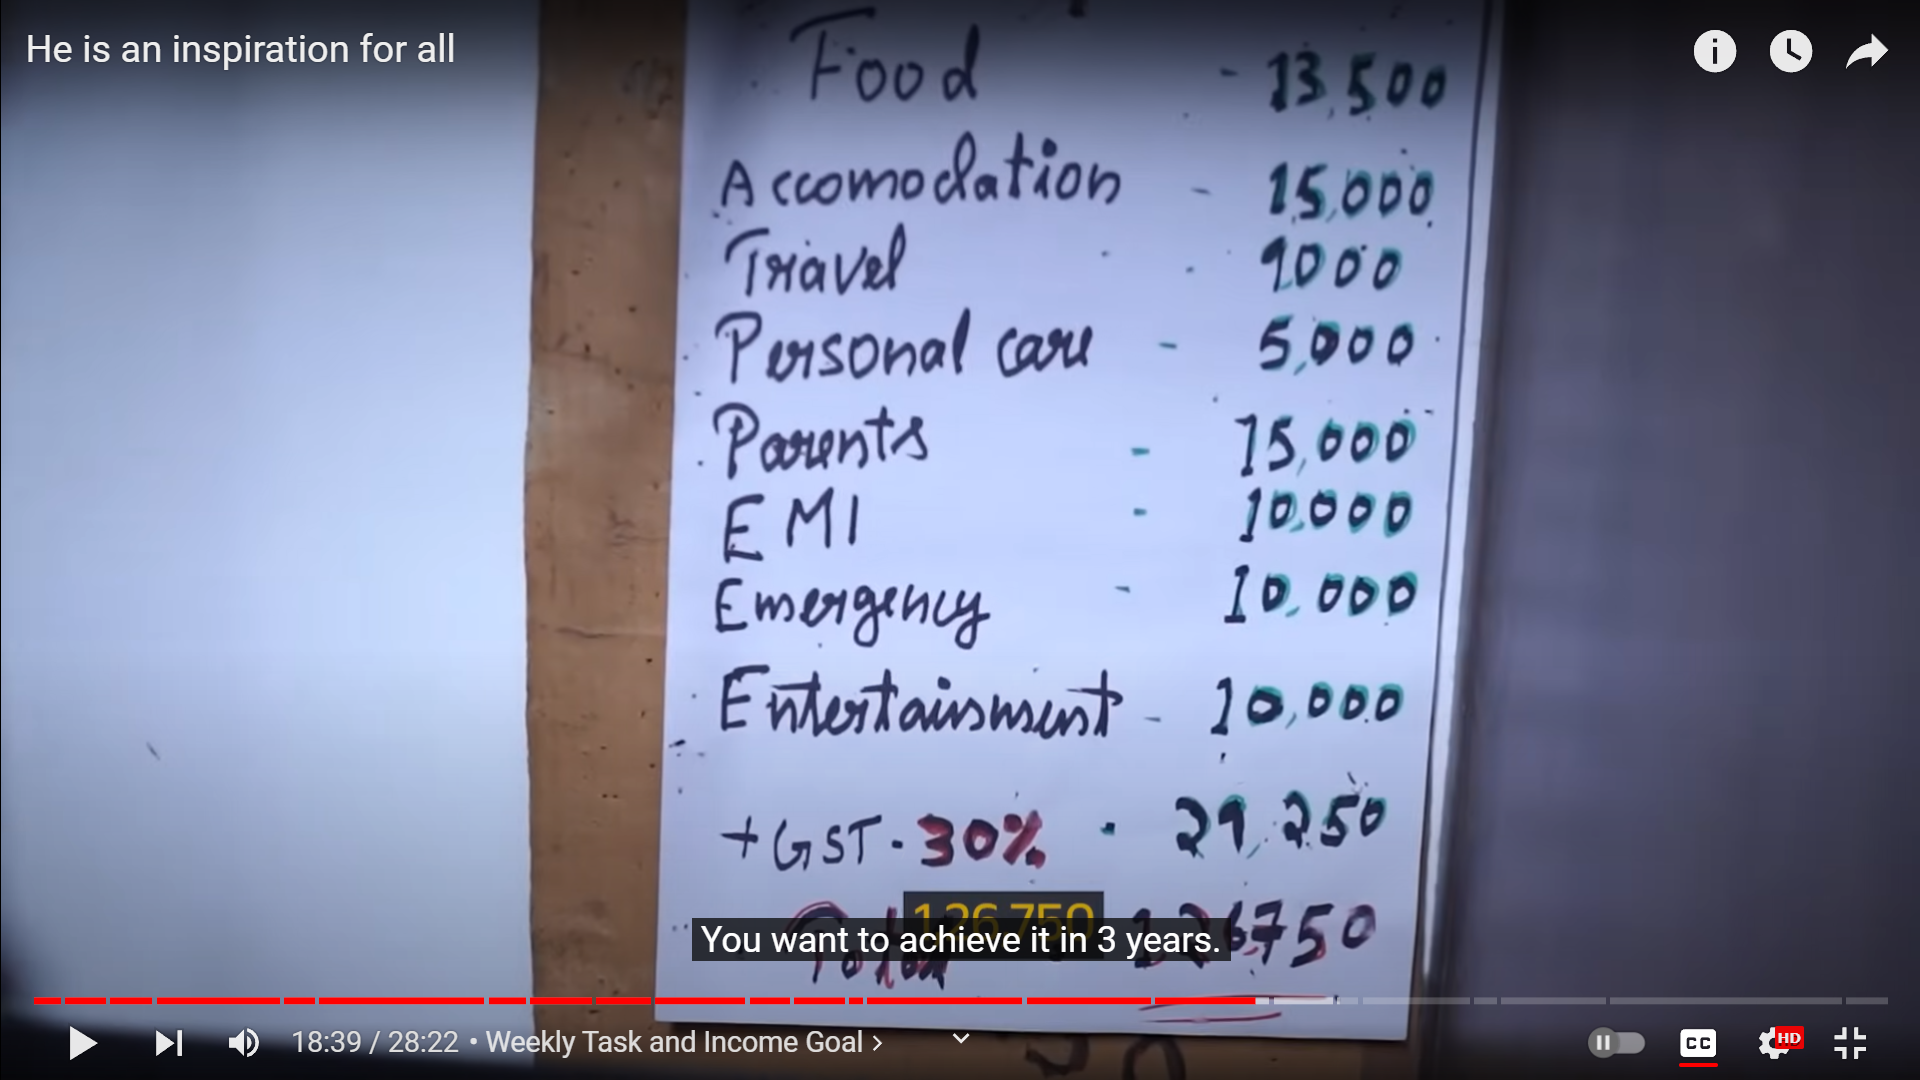 He is an inspiration for all
Food - 13,500
Accomodation - 15,000
Travel - 9000
Personal care - 5,000
Parents - 15,000
EMI - 10,000
Emergency - 10,000
Entertainment - 10,000
+ GST - 30% - 29,250
Total 126750
126,750
You want to achieve it in 3 years.
18:39 / 28:22 • Weekly Task and Income Goal >
CC
HD